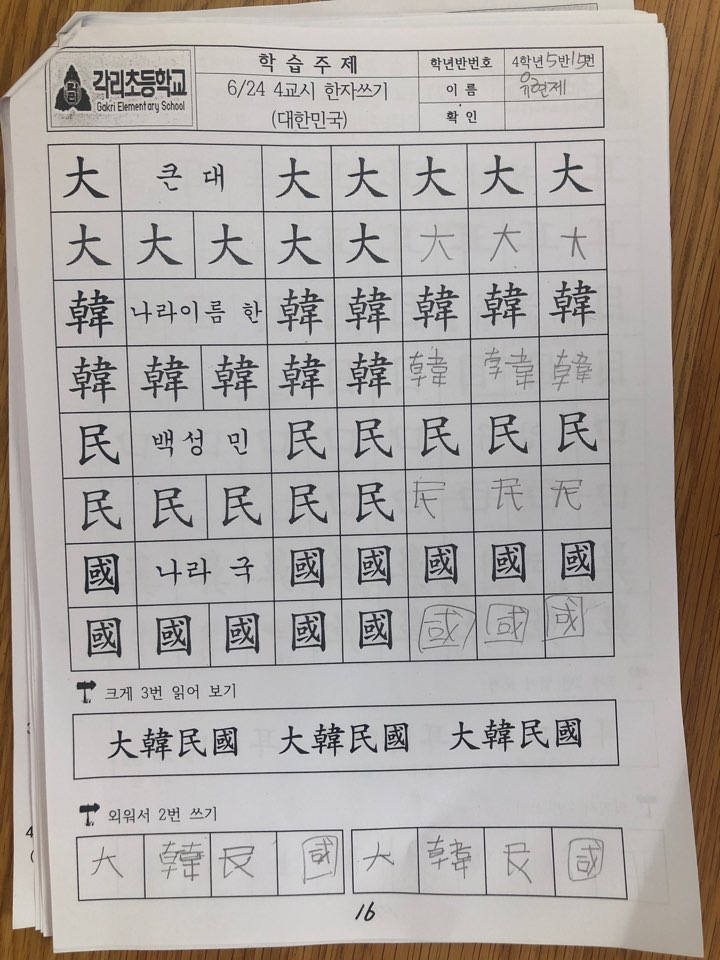 각리초등학교
Gakri Elementary School
학습주제
6/24 4교시 한자쓰기
(대한민국)
학년반번호 4학년5반15번
이름 유현제
확인
大 큰 대 大 大 大 大 大
大 大 大 大 大 大 大 大
韓 나라이름 한 韓 韓 韓 韓 韓
韓 韓 韓 韓 韓 韓 韓 韓
民 백성 민 民 民 民 民 民
民 民 民 民 民 民 民 民
國 나라 국 國 國 國 國 國
國 國 國 國 國 國 國 國
크게 3번 읽어 보기
大韓民國 大韓民國 大韓民國
외워서 2번 쓰기
大 韓 民 國 大 韓 民 國
16